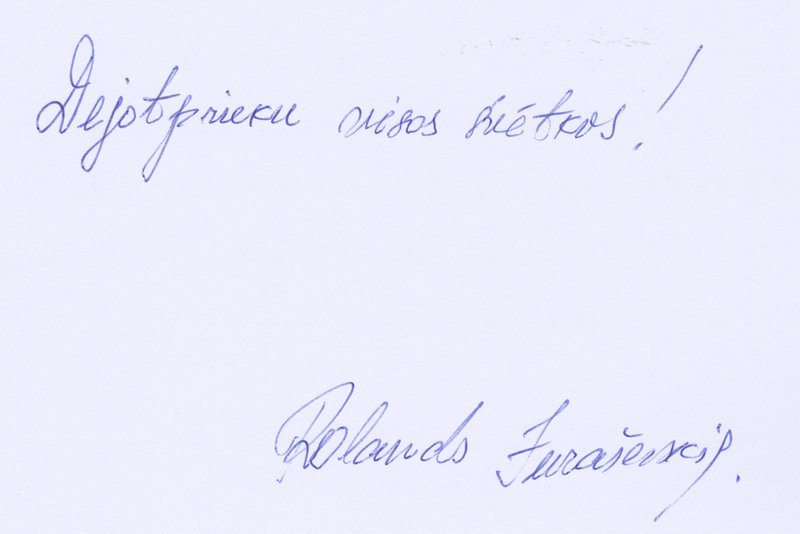 Dejotprieku visos svētkos!
Rolands Juraševskis.